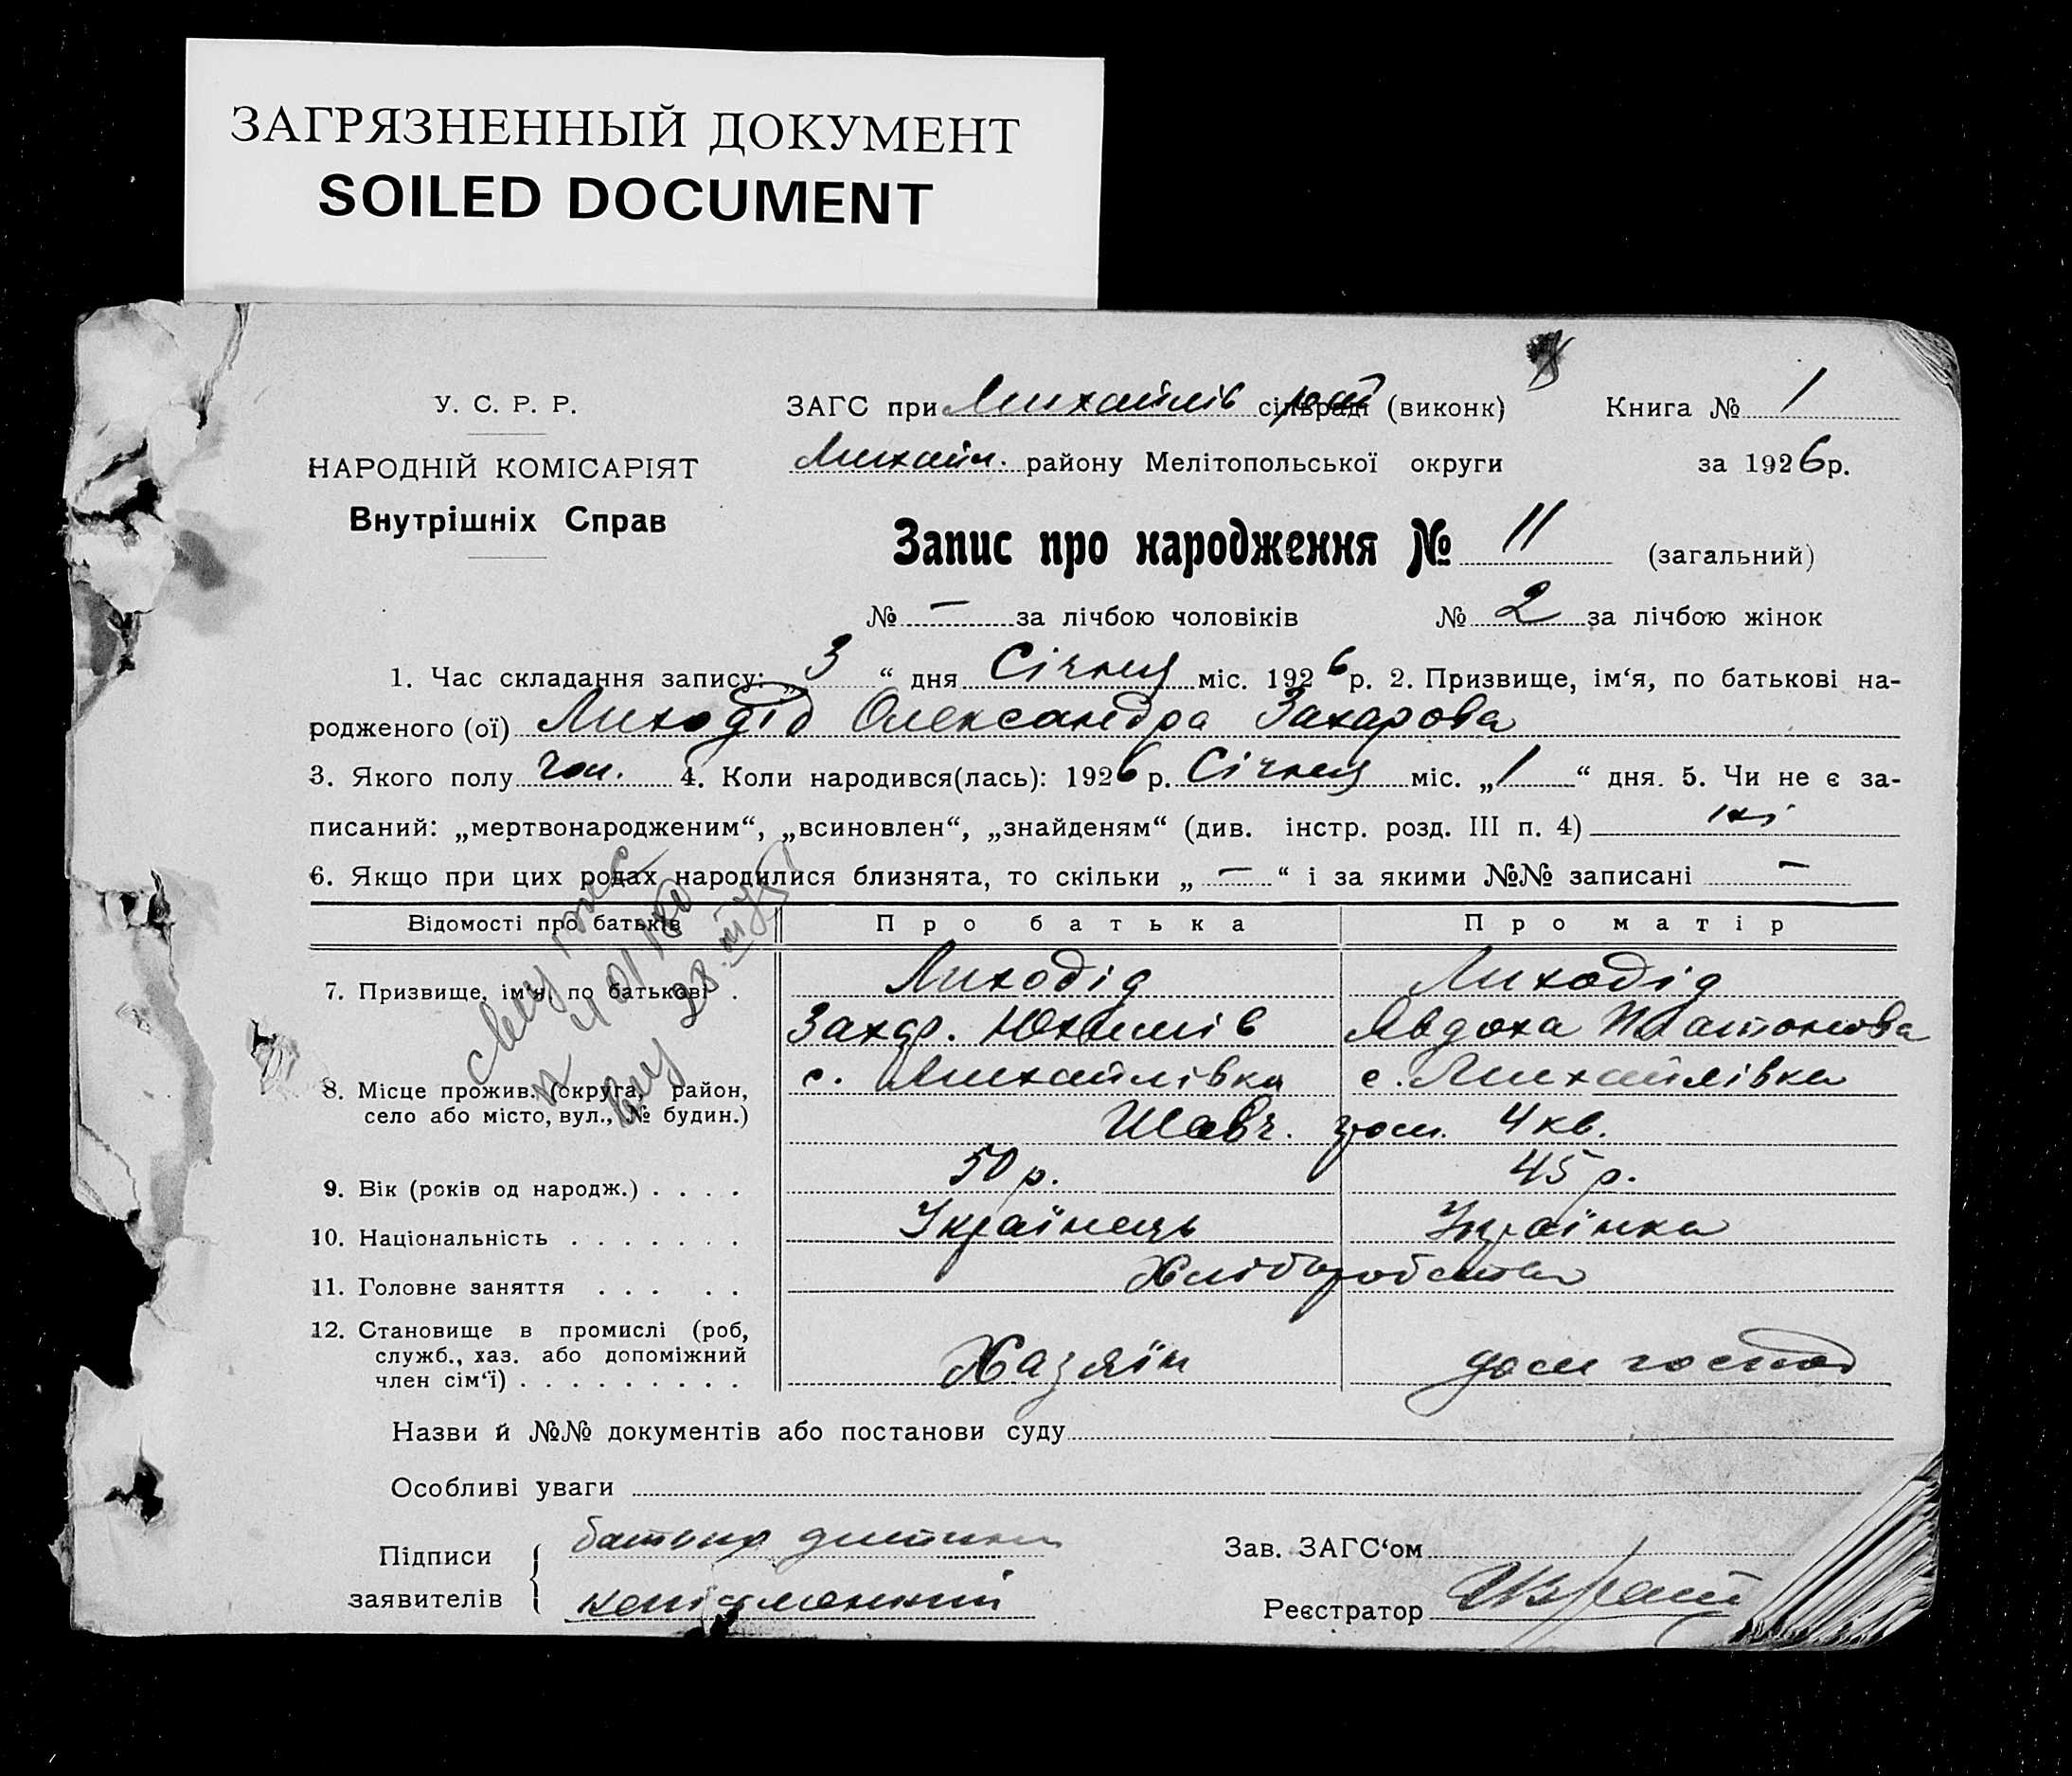 ЗАГРЯЗНЕННЫЙ ДОКУМЕНТ
SOILED DOCUMENT
У. С. Р. Р.
НАРОДНІЙ КОМІСАРІЯТ
Внутрішніх Справ
ЗАГС при Михайлів сільраді рай (виконк) Книга № 1
Михайл. району Мелітопольської округи за 1926 р.
Запис про народження № 11 (загальний)
№ — за лічбою чоловіків № 2 за лічбою жінок
1. Час складання запису: „ 3 “ дня Січня міс. 1926 р. 2. Призвище, ім‘я, по батькові на-
родженого (ої) Лиходід Олександра Захарова
3. Якого полу чол. 4. Коли народився(лась): 1926 р. Січня міс. „ 1 “ дня. 5. Чи не є за-
писаний: „мертвонародженим“, „всиновлен“, „знайденям“ (див. інстр. розд. III п. 4) ні
6. Якщо при цих родах народилися близнята, то скільки „ — “ і за якими №№ записані —
Відомості про батьків Про батька Про матір
7. Призвище, ім‘я, по батькові . Лиходід Лиходід
Захар. Юхимів Явдоха Платонова
8. Місце прожив. (округа, район, село або місто, вул., № будин.) с. Михайлівка с. Михайлівка
Шевч. гром. 4 кв.
9. Вік (років од народж.) . . . . 50 р. 45 р.
10. Національність . . . . . . . Українець Українка
11. Головне заняття . . . . . Хліборобство
12. Становище в промислі (роб, служб., хаз. або допоміжний член сім‘ї) . . . . . . . . . Хазяїн дом господ
Назви й №№ документів або постанови суду
Особливі уваги
Підписи заявителів батько дитини
Зав. ЗАГС‘ом
Реєстратор